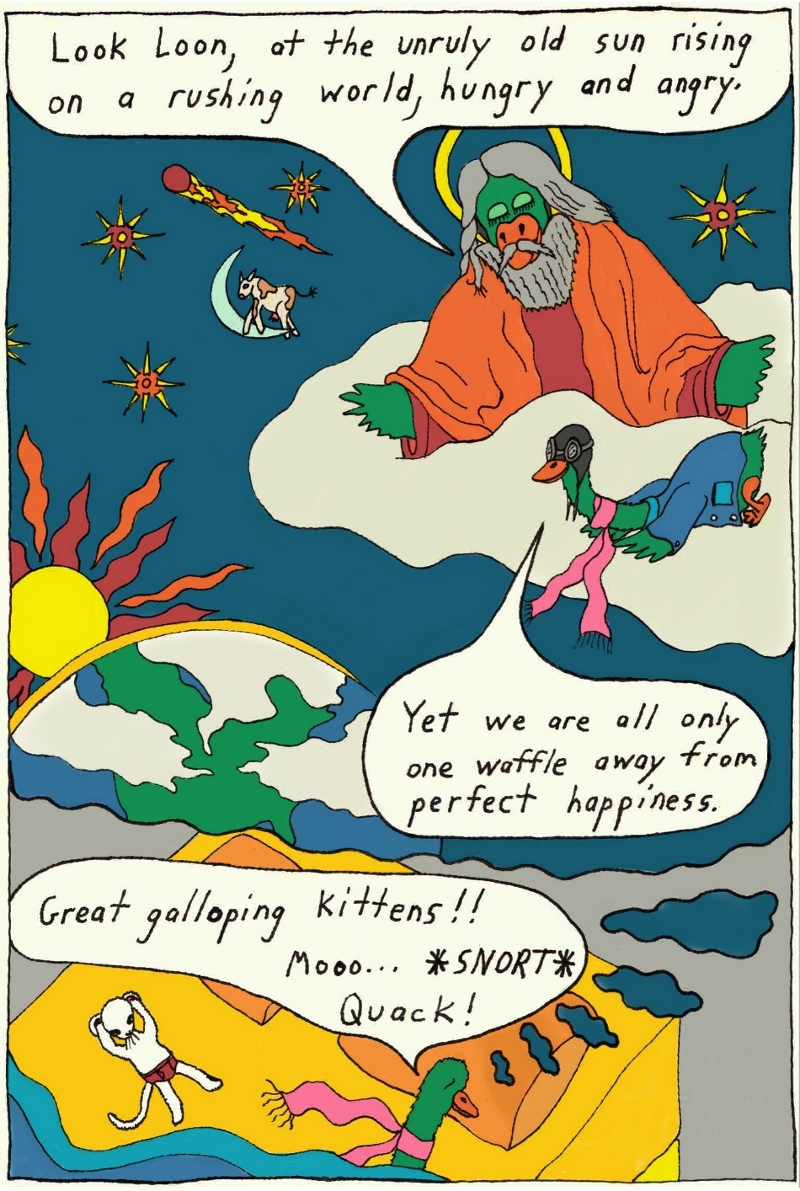 Look Loon, at the unruly old sun rising
on a rushing world, hungry and angry.
Yet we are all only
one waffle away from
perfect happiness.
Great galloping kittens!!
Mooo... *SNORT*
Quack!